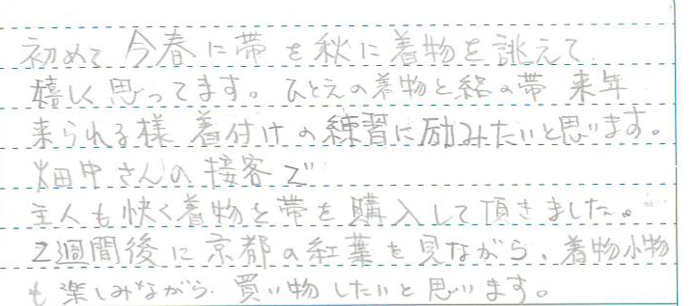 初めて今春に帯を秋に着物を誂えて
嬉しく思ってます。ひとえの着物と絽の帯 来年
来られる様 着付けの練習に励みたいと思います。
畑中さんの接客で
主人も快く着物を帯を購入して頂きました。
2週間後に京都の紅葉を見ながら、着物小物
も楽しみながら買い物したいと思います。